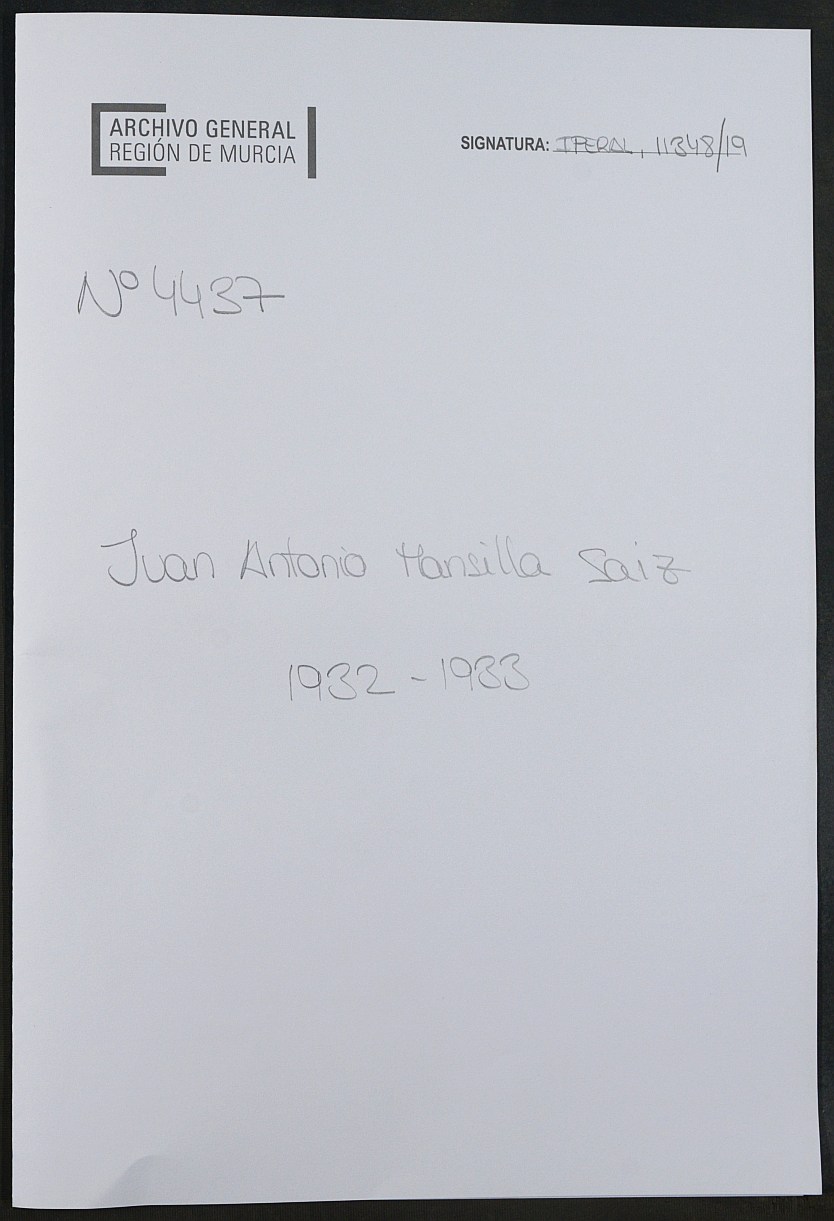 ARCHIVO GENERAL
REGIÓN DE MURCIA
SIGNATURA: IPERAL, 11348/19
Nº 4437
Juan Antonio Mansilla Saiz
1932 - 1933